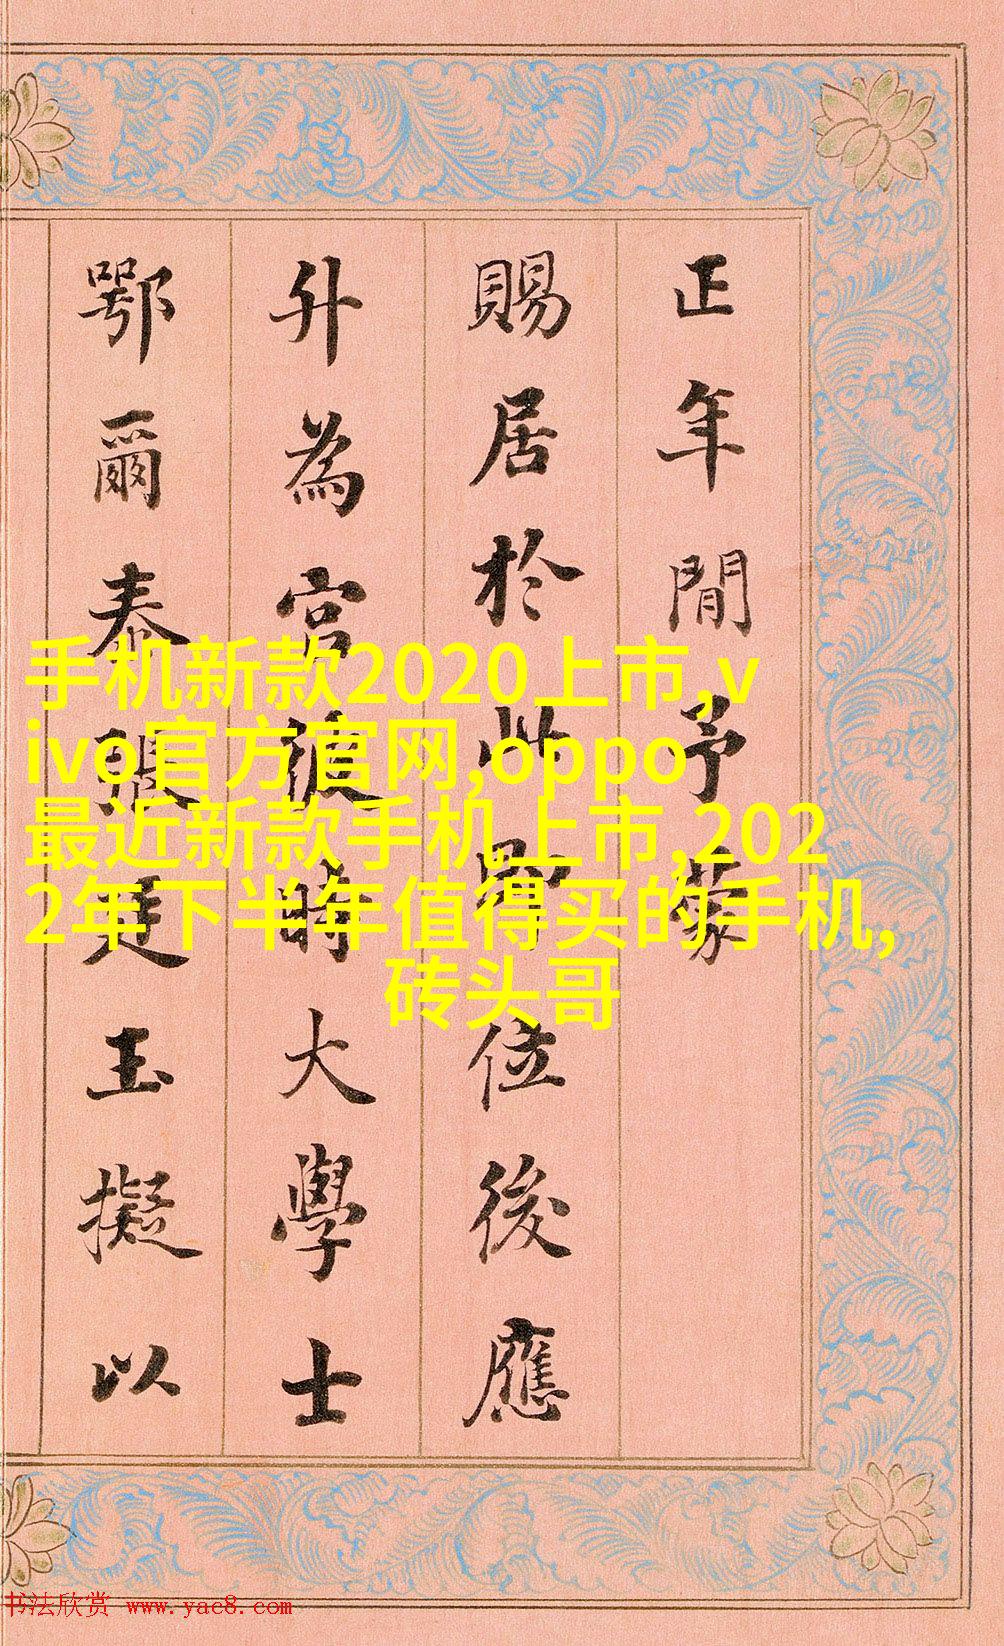 正年間予蒙
賜居於此即位後應
升為宮彼時大學士
鄂爾泰張廷玉擬以
手机新款2020上市,v
ivo官方官网,oppo
最近新款手机上市,202
2年下半年值得买的手机,
砖头哥
书法欣赏 www.yac8.com